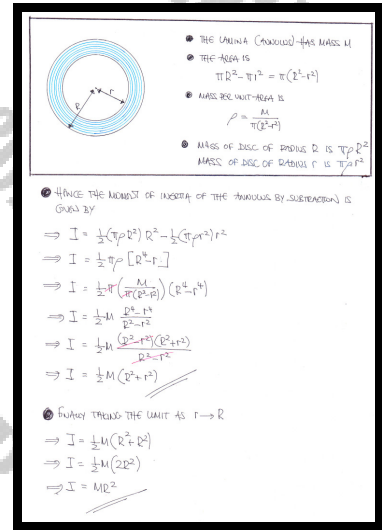 R
r
• THE LAMINA (ANNULUS) HAS MASS M
• THE AREA IS
πR² - πr² = π(R²-r²)
• MASS PER UNIT AREA IS
ρ = M / π(R²-r²)
• MASS OF DISC OF RADIUS R IS πρR²
MASS OF DISC OF RADIUS r IS πρr²
• HENCE THE MOMENT OF INERTIA OF THE ANNULUS BY SUBTRACTION IS
GIVEN BY
⇒ I = ½(πρR²)R² - ½(πρr²)r²
⇒ I = ½πρ[R⁴-r⁴]
⇒ I = ½π(M / π(R²-r²))(R⁴-r⁴)
⇒ I = ½M (R⁴-r⁴) / (R²-r²)
⇒ I = ½M (R²-r²)(R²+r²) / (R²-r²)
⇒ I = ½M(R²+r²)
• FINALLY TAKING THE LIMIT AS r→R
⇒ I = ½M(R²+R²)
⇒ I = ½M(2R²)
⇒ I = MR²